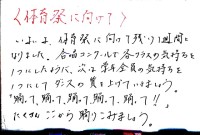 〈体育祭に向けて〉
いよいよ、体育祭に向けて残り1週間と
なりました。合唱コンクールで各クラスの気持ちを
1つにしたように、次は学年全員の気持ちを
1つにしてダンスの質を上げていきましょう。
"踊って、踊って、踊って、踊って、踊って!!"
たくさんごっそり踊りこみましょう。